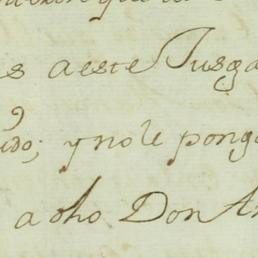 s aeste Jusga
ido; y no le ponga
a dho Don An